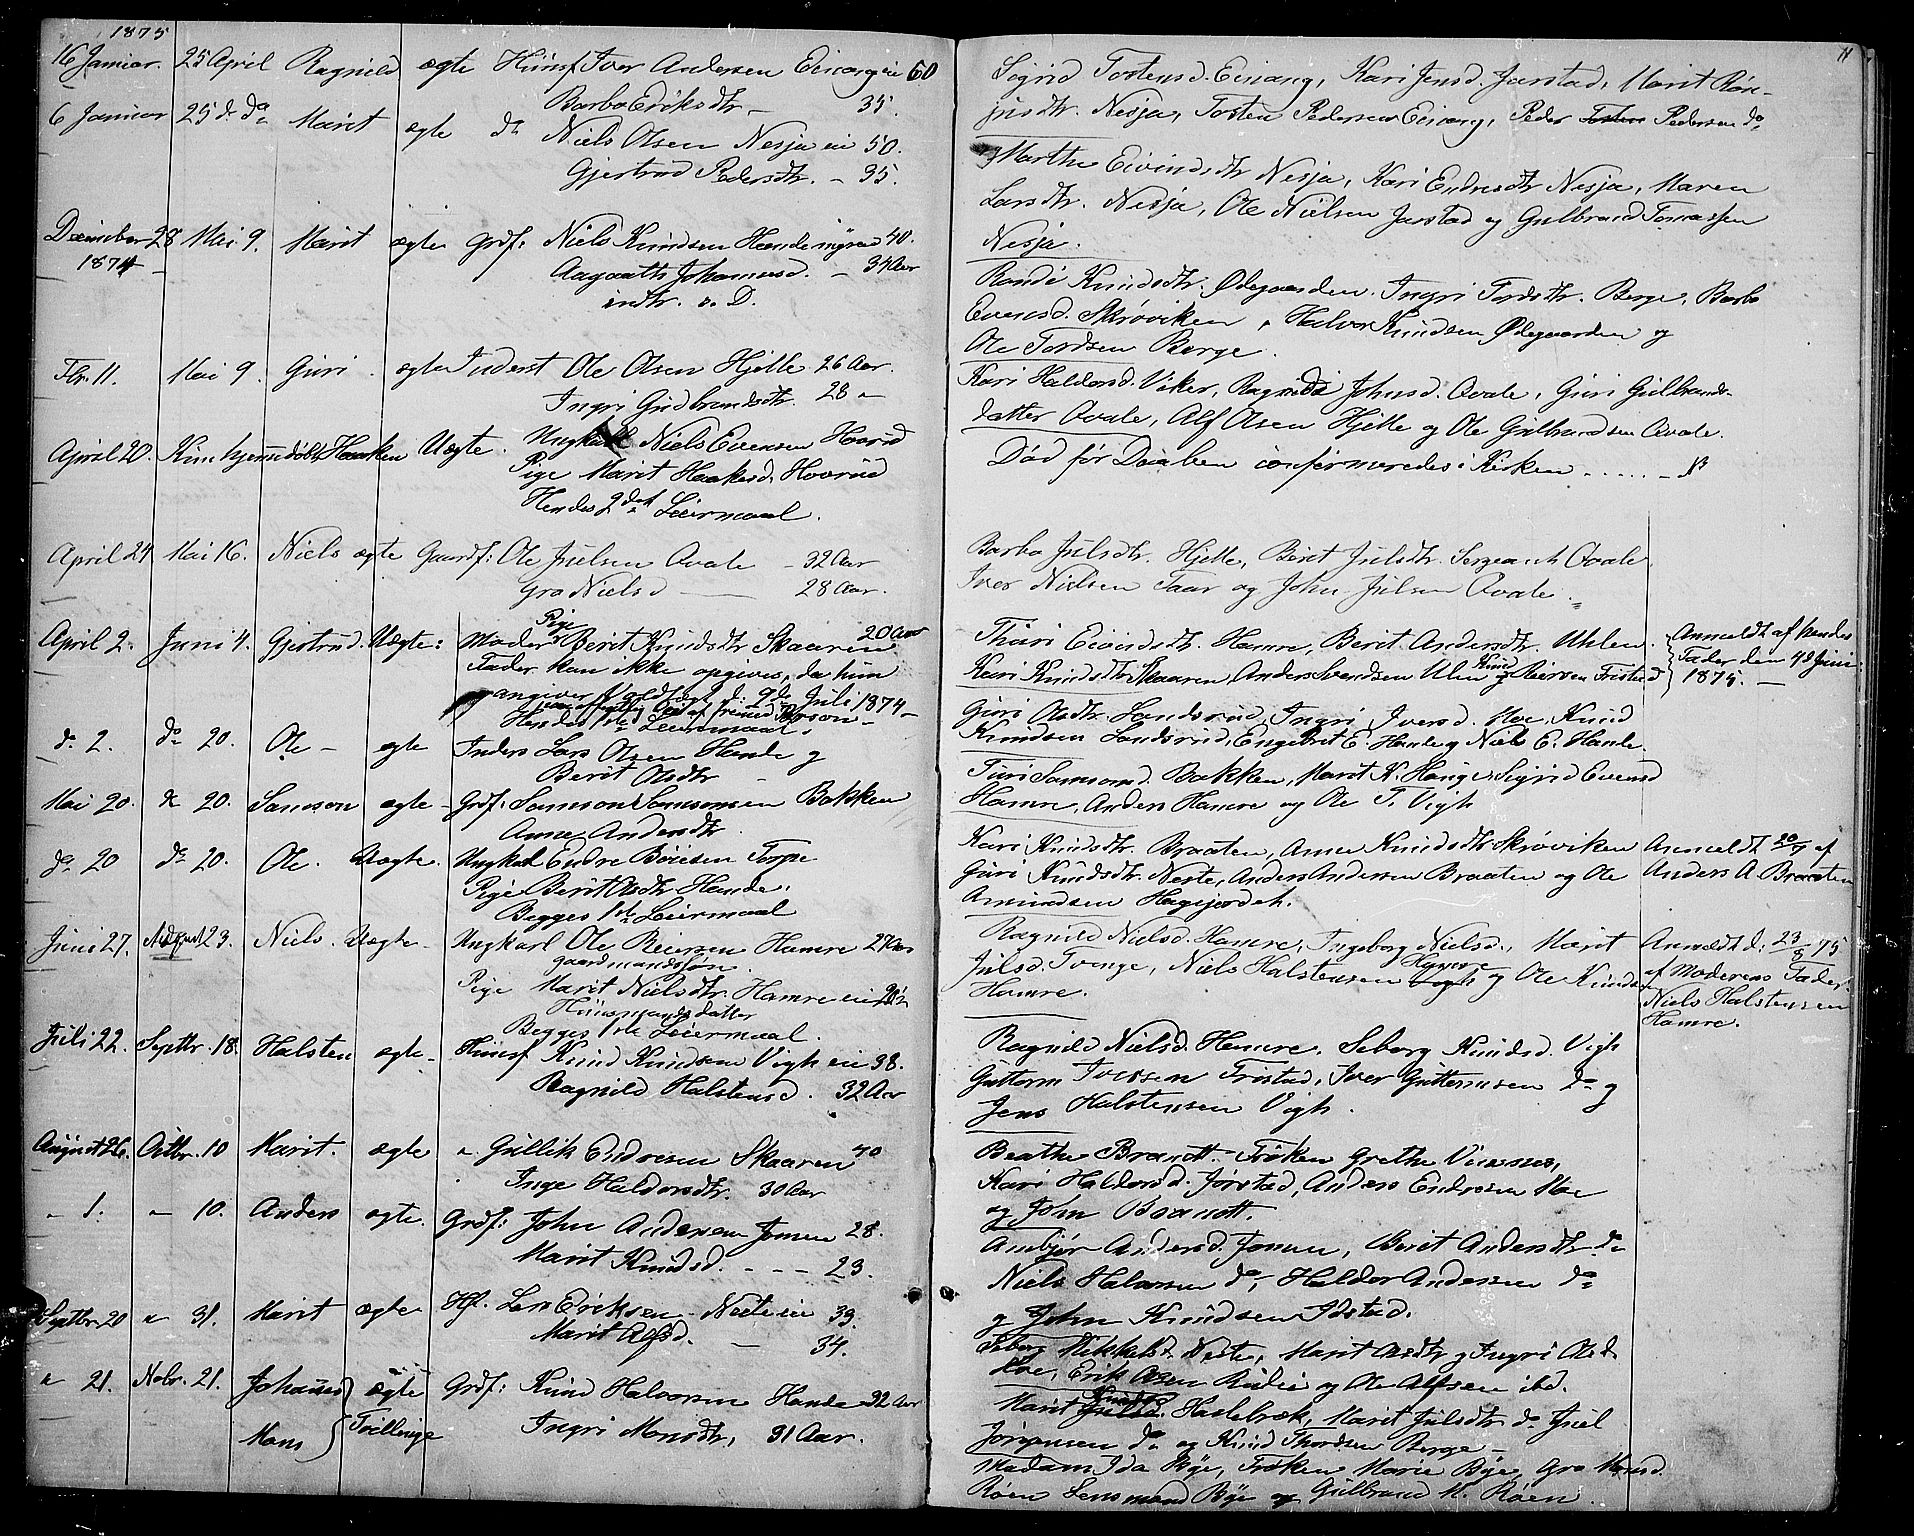 1875
16 Januar. 25 April Ragnild ægte Huusf Iver Andersen Eivang ei 60
Barbo Eriksdtr — 35.
6 Januar 25 d. do Marit ægte do Niels Olsen Nesja ei 50.
Gjertrud Pedersdtr. — 35.
December 28 Mai 9. Marit ægte Grdf: Niels Knudsen Haandemyren 40.
1874 — Aagaath Johannesd. — 34 Aar
indtr. s. D.
Fbr. 11. Mai 9. Guri ægte Inderst Ole Olsen Hjelle 26 Aar.
Ingri Gudbrandsdtr. 28 "
April 20. Haaken Uægte. Ungkarl Niels Evensen Hovrud
Pige Marit Haakesd. Hovrud
Hendes 2det Leiermaal.
April 24 Mai 16. Niels ægte Gaardf: Ole Julsen Qvale — 32 Aar
Gro Nielsd — 28 Aar.
April 2. Juni 4. Gjertrud. Uægte: Moder Pige Berit Knudsdtr Skaaren 20 Aar
Fader kan ikke opgives, da hun
angiver Voldtægt d. 9de Juli 1874 —
Hendes 1ste Leiermaal.
d. 2. do 20. Ole — ægte Inders Lars Olsen Hande og
Berit Olsdtr —
Mai 20. do 20. Samson ægte — Grdf: Samson Samsonsen Bakken
Anne Andersdtr.
do 20 do 20. Ole. Uægte. Ungkarl Endre Böiesen Torpe
Pige Berit Olsdtr Hande.
Begges 1ste Leiermaal
Juni 27. August 23. Niels. Uægte — Ungkarl Ole Beiersen Hamre 27 Aar
gaardmandssøn.
Pige Marit Nielsdtr. Hamre ei
Huusmandsdatter
Begges 1ste Leiermaal.
Juli 22. Septbr. 18. Halsten ægte — Huusf Knud Knudsen Vigh ei 38.
Ragnild Halstensd. 32 Aar
August 26. Octbr. 10 Marit. ægte " Gullik Endresen Skaaren 40
Inge Haldorsdtr. 30 Aar
" 1. " 10. Anders ægte. Grdf: John Andersen Jomen 28.
Marit Knudsd. — — — 23.
Septbr 20 " 31. Marit ægte Hf. Lars Eriksen Neste ei 39.
Marit Alfsd. — 34.
" 21. Nobr. 21. Johannes } ægte Grdf: Knud Halvorsen Hande 32 Aar
Mons } Tvillinge Ingri Monsdtr, 31 Aar.
11
Sigrid Tostensd. Eivang, Kari Jensd. Jarstad, Marit Røn-
jusdtr. Nesja, Tosten Pedersen Eivang, Peder Pedersen do
Marthe Eivindsdtr Nesja, Kari Endresdtr Nesja, Maren
Larsdtr. Nesja, Ole Nielsen Jarstad og Gulbrand Tomassen
Nesja.
Randi Knudsdtr. Ødegaarden. Ingri Tordsdtr. Berge, Barbo
Evensd. Skrøviken, Halvor Knudsen Ødegaarden og
Ole Tordsen Berge.
Kari Haldorsd. Viker, Ragnild Johnsd. Qvale, Guri Gulbrands-
datter Qvale, Alf Olsen Hjelle og Ole Gulbrandsen Qvale.
Død før Daaben confirmeredes i Kirken
Barbo Julsdtr. Hjelle, Berit Julsdtr. Sergeant Qvale,
Iver Nielsen Faar og John Julsen Qvale.
Thuri Eivindsdtr. Hamre, Berit Andersdtr. Uhlen.
Kari Knudsdtr Skaaren, Anders Svendsen Ulen og Knud Beirsen Fristad
Anmeldt af hendes
Fader den 4de Juni
1875. —
Guri Olsdtr. Sandsrud, Ingri Iversd. Moe, Knud
Knudsen Sandsrud, Engebret E. Hande og Niels E. Hande.
Turi Samsonsd. Bakken, Marit K. Hauge, Sigrid Evensd
Hamre, Anders Hamre og Ole T. Vigh
Kari Knudsdtr. Braaten, Anne Knudsdtr Skrøviken
Guri Knudsdtr. Neste, Anders Andersen Braaten og Ole
Amundsen Hagejordet.
Anmeldt af
Anders A. Braaten
Ragnild Nielsd. Hamre, Ingeborg Nielsd., Marit
Julsd. Tvenge, Niels Halstensen og Ole Knudsen
Hamre.
Anmeldt d. 23/8 75
af Moderens Fader
Niels Halstensen
Hamre.
Ragnild Nielsd. Hamre. Seborg Knudsd. Vigh
Guttorm Iversen Fristad, Iver Guttormsen do og
Jens Halstensen Vigh.
Beathe Brandt, Frøken Grethe
Kari Haldorsd. Jørstad, Anders Endresen Moe
og John Brandt.
Anbjør Andersd. Jomen, Berit Andersdtr. do
Niels Halvorsen do, Haldor Andersen do
og John Knudsen Idstad.
Seborg Mikkelsd. Neste, Marit Olsdtr og Ingri Olsd.
Moe, Erik Olsen Rudi og Ole Alfsen ibd.
Marit Knudsd. Haslebræk, Marit Julsdtr do Juel
Jørgensen do og Knud Thordsen Berge —
Madam Ida Bye, Frøken Marie Bye, Gro Monsd.
Røen Lensmand Bye og Gulbrand M. Røen.